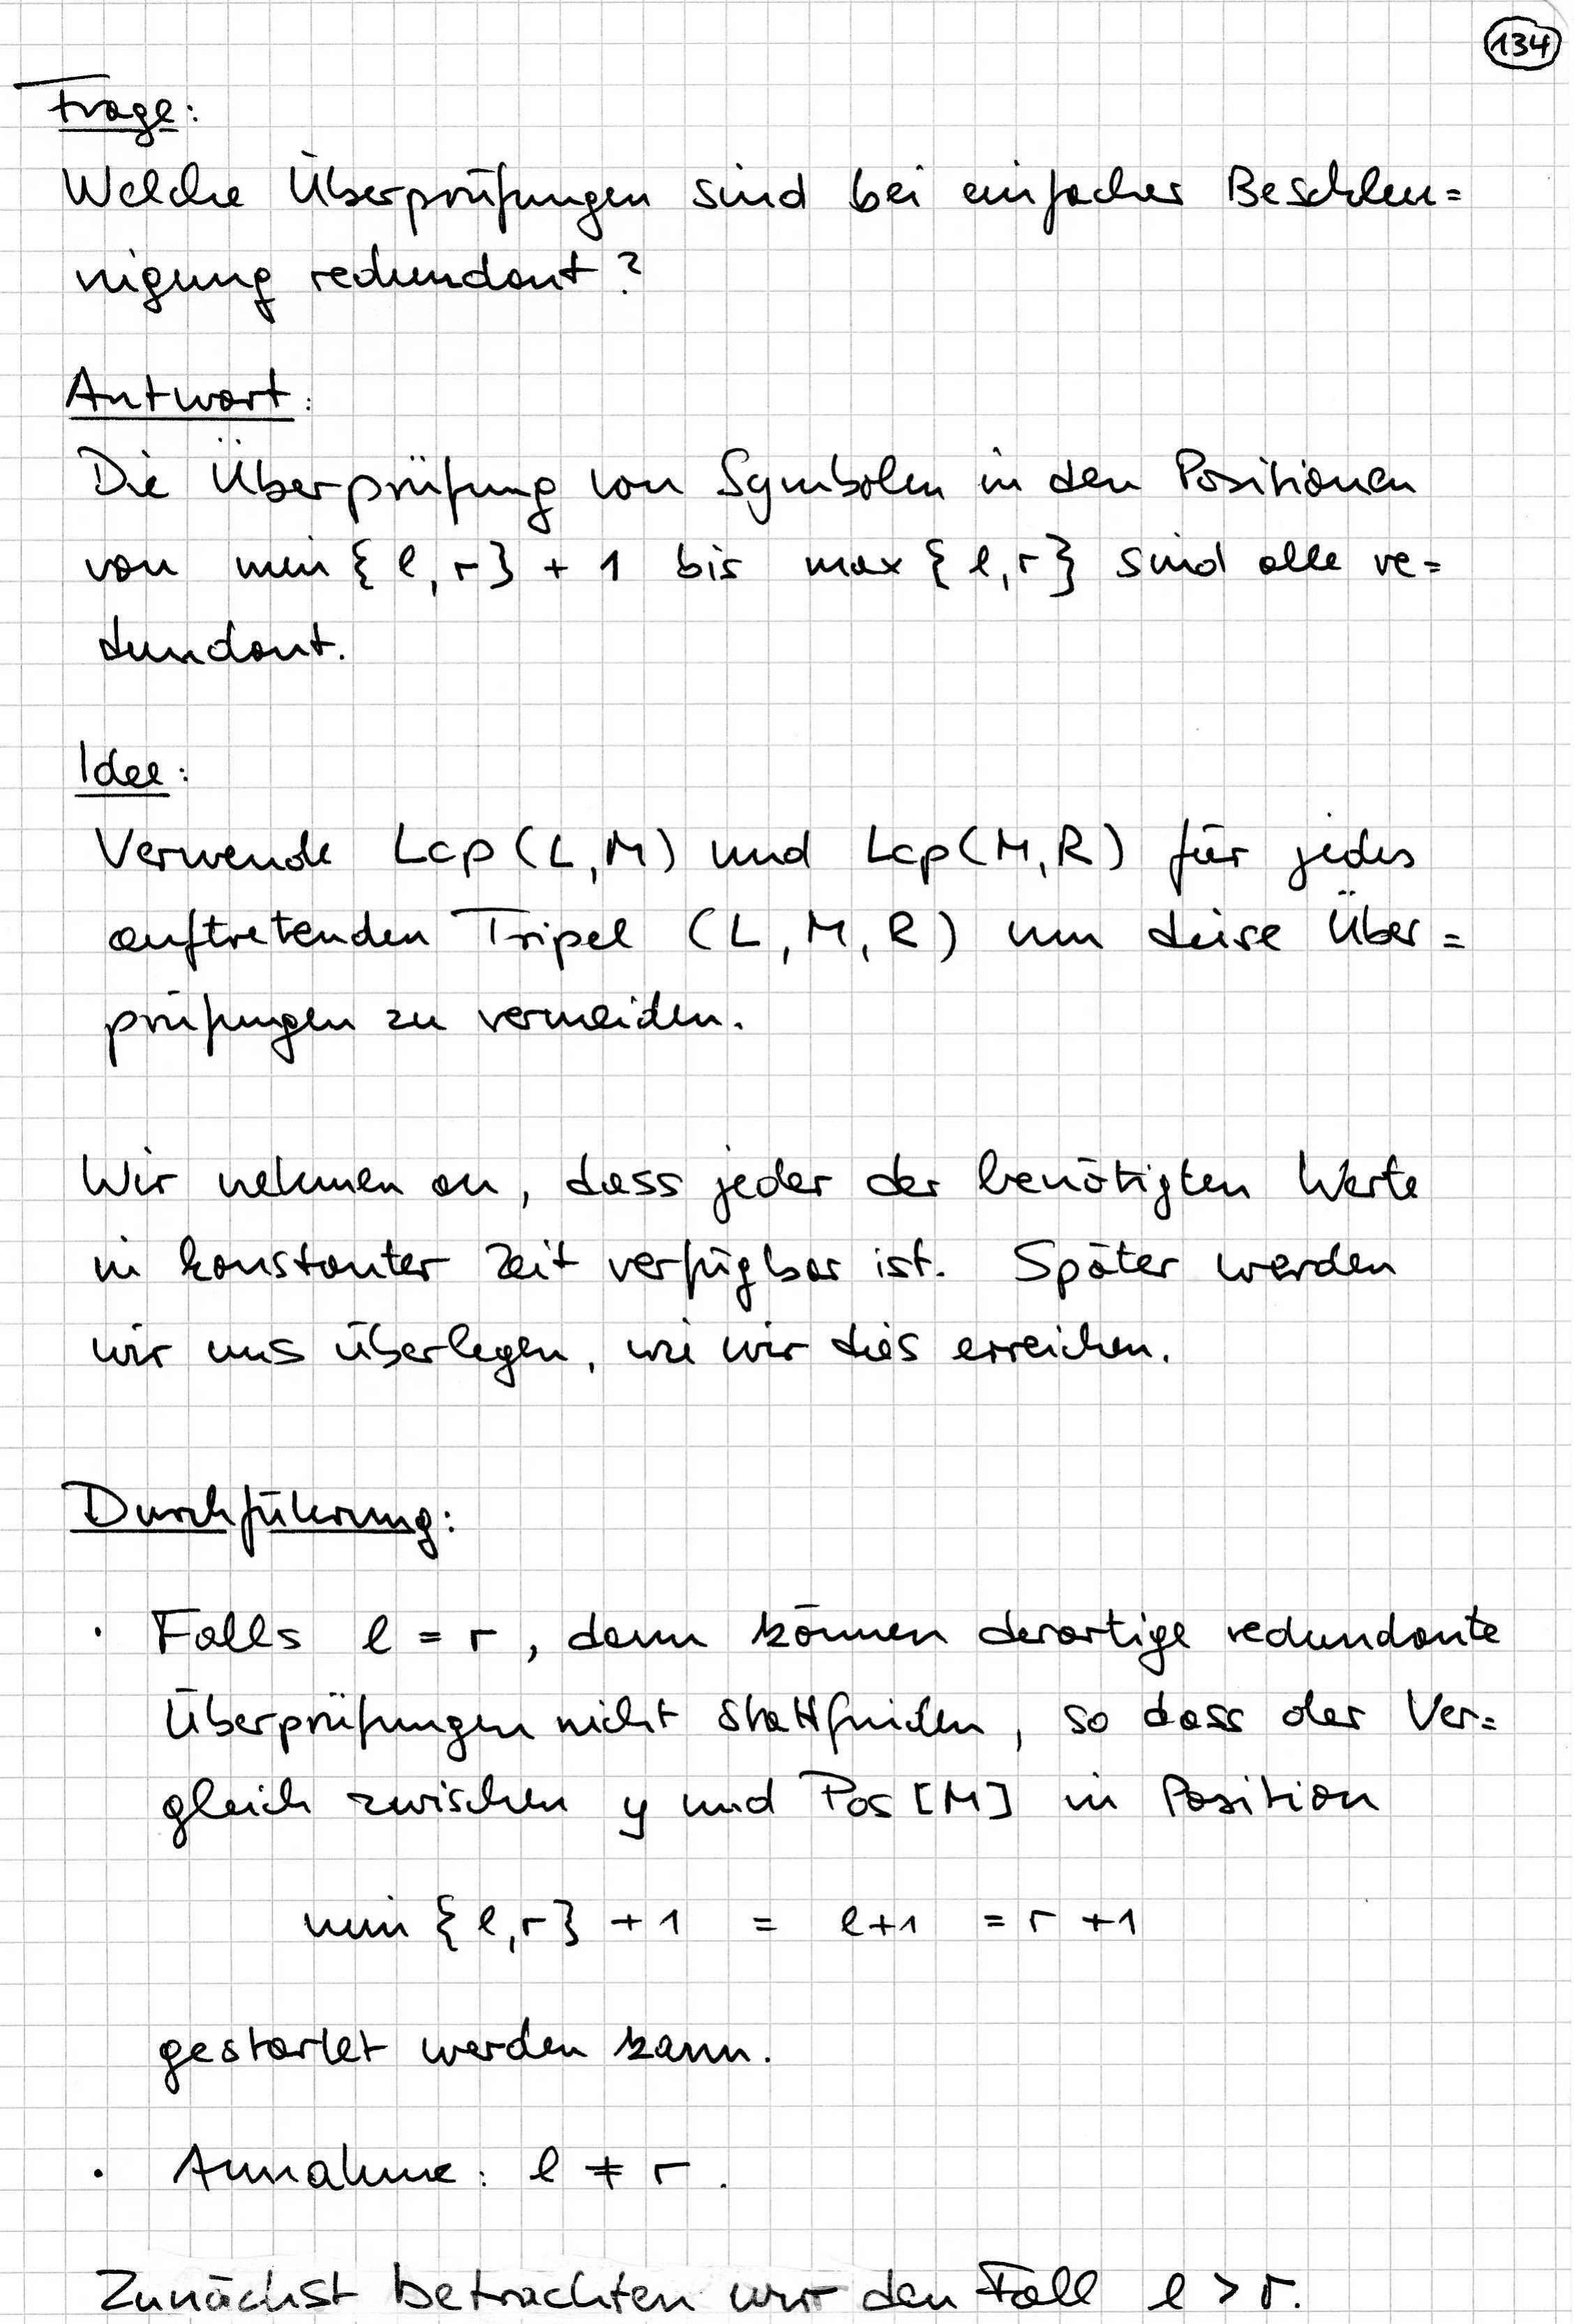 134
Frage:
Welche Überprüfungen sind bei einfacher Beschleu=
nigung redundant?
Antwort:
Die Überprüfung von Symbolen in den Positionen
von min{l,r} + 1 bis max{l,r} sind alle re=
dundant.
Idee:
Verwende Lcp(L,M) und Lcp(M,R) für jedes
auftretenden Tripel (L,M,R) um diese Über=
prüfungen zu vermeiden.
Wir nehmen an, dass jeder der benötigten Werte
in konstanter Zeit verfügbar ist. Später werden
wir uns überlegen, wie wir dies erreichen.
Durchführung:
· Falls l = r, dann können derartige redundante
Überprüfungen nicht stattfinden, so dass der Ver=
gleich zwischen y und Pos[M] in Position
min{l,r} + 1 = l+1 = r+1
gestartet werden kann.
· Annahme: l ≠ r.
Zunächst betrachten wir den Fall l > r.